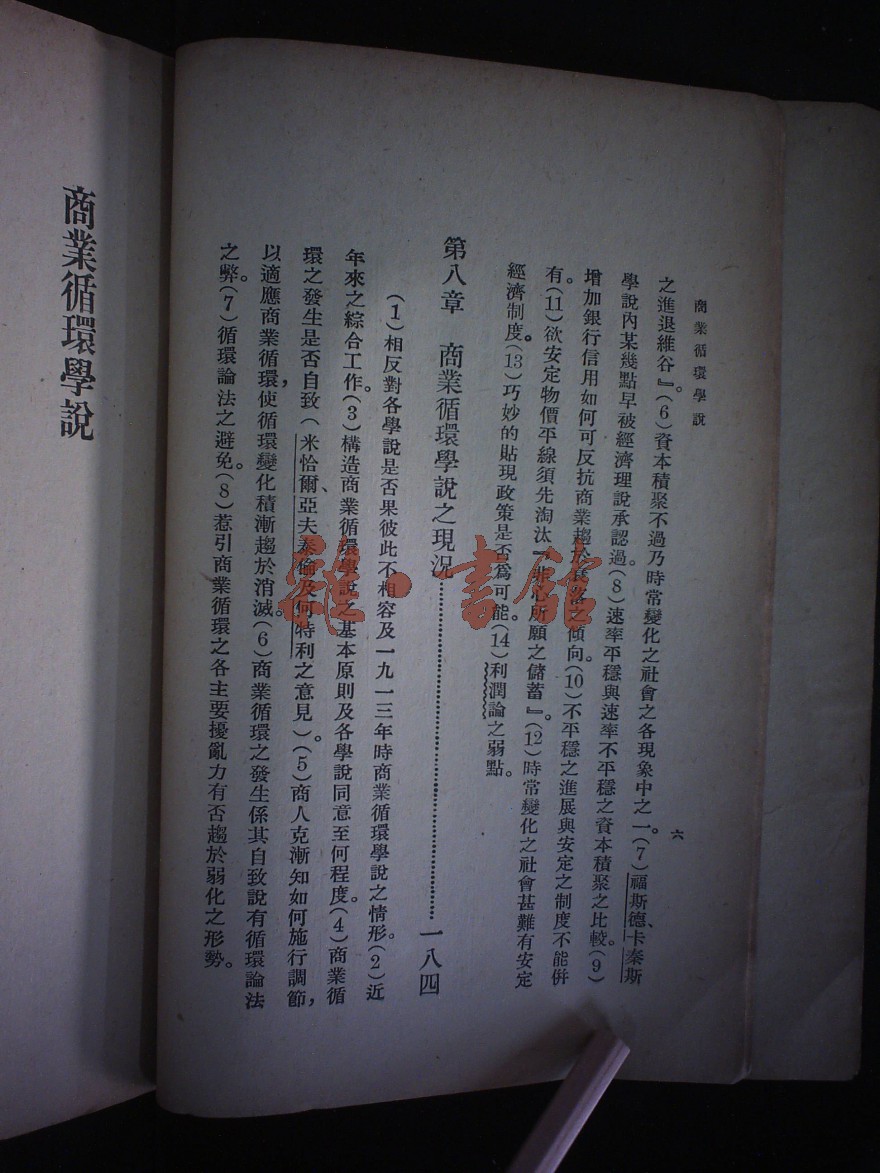 商業循環學說
六
之進退維谷』。(6)資本積聚不過乃時常變化之社會之各現象中之一。(7)福斯德、卡秦斯
學說內某幾點早被經濟理說承認過。(8)速率平穩與速率不平穩之資本積聚之比較。(9)
增加銀行信用如何可反抗商業趨於衰落之傾向。(10)不平穩之進展與安定之制度不能併
有。(11)欲安定物價平線須先淘汰『非心所願之儲蓄』。(12)時常變化之社會甚難有安定
經濟制度。(13)巧妙的貼現政策是否為可能。(14)利潤論之弱點。
第八章 商業循環學說之現況……一八四
(1)相反對各學說是否果彼此不相容及一九一三年時商業循環學說之情形。(2)近
年來之綜合工作。(3)構造商業循環學說之基本原則及各學說同意至何程度。(4)商業循
環之發生是否自致(米恰爾、亞夫泰倫及何特利之意見)。(5)商人克漸知如何施行調節,
以適應商業循環,使循環變化積漸趨於消滅。(6)商業循環之發生係其自致說有循環論法
之弊。(7)循環論法之避免。(8)惹引商業循環之各主要擾亂力有否趨於弱化之形勢。
商業循環學說
雜·書館